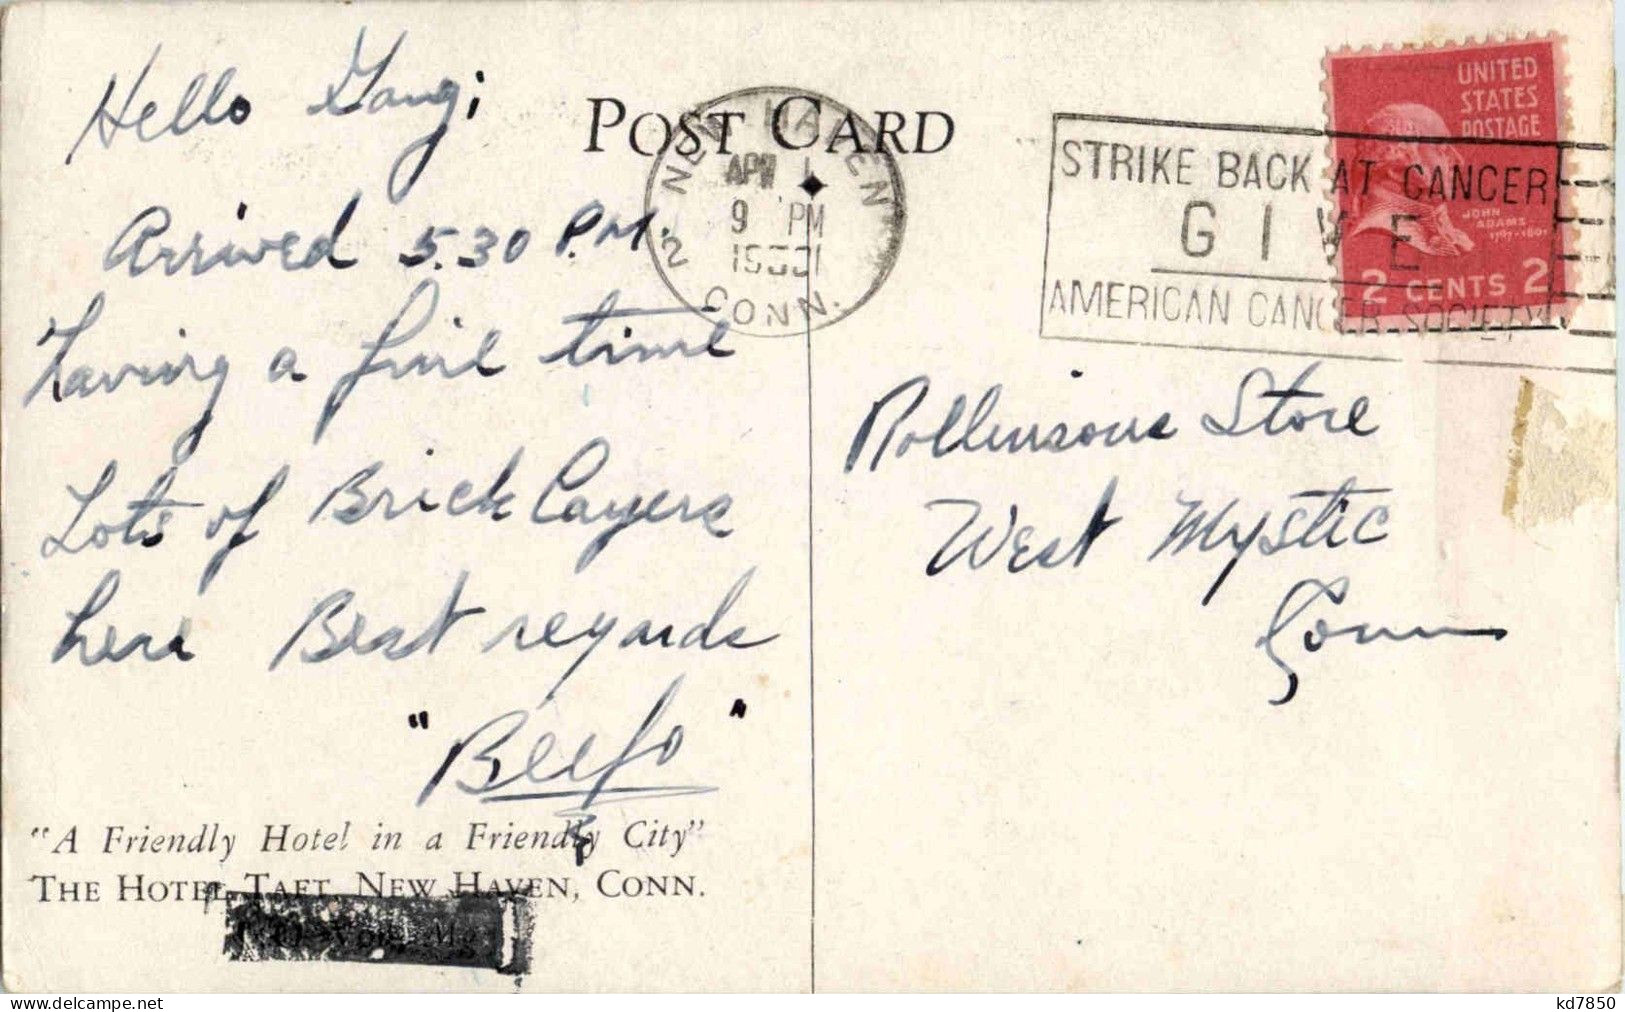 Hello Gang;
Arrived 5.30 P.M.
Having a fine time
Lots of Brick Layers
here Best regards
"Beefo"
"A Friendly Hotel in a Friendly City"
THE HOTEL TAFT, NEW HAVEN, CONN.
POST CARD
NEW HAVEN
9 PM
2 CONN.
STRIKE BACK AT CANCER
GIVE
AMERICAN CANCER SOCIETY
UNITED
STATES
POSTAGE
JOHN
ADAMS
1797-1801
2 CENTS 2
Rollinsons Store
West Mystic
Conn
kd7850